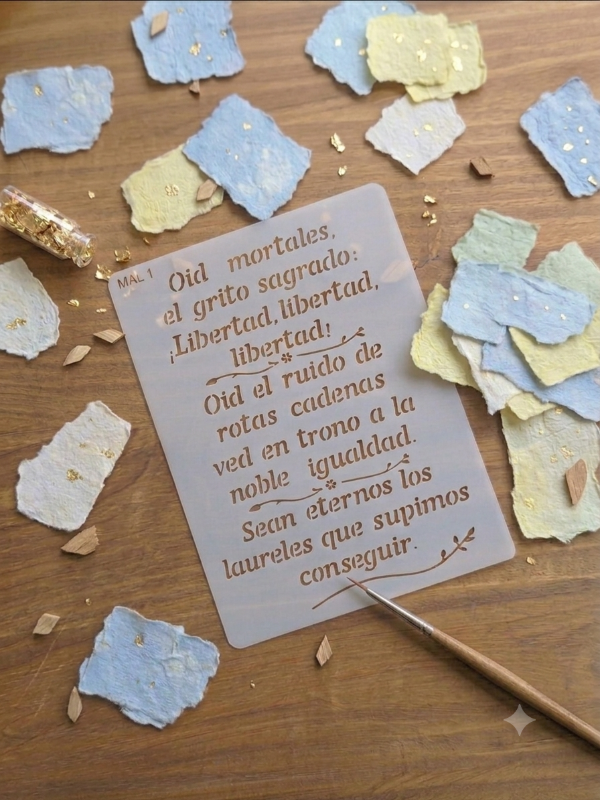 MAL 1
Oid mortales,
el grito sagrado:
¡Libertad, libertad,
libertad!
Oid el ruido de
rotas cadenas
ved en trono a la
noble igualdad.
Sean eternos los
laureles que supimos
conseguir.